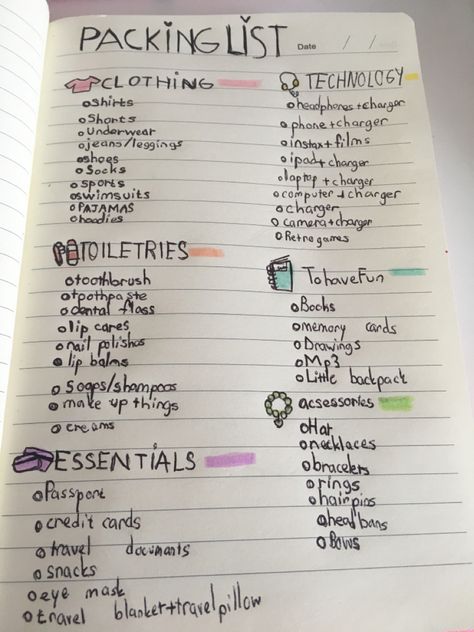 PACKING LIST
Date / /
CLOTHING
Shirts
Shorts
Underwear
jeans/leggings
shoes
Socks
sports
swimsuits
PAJAMAS
hoodies
TOILETRIES
toothbrush
tpothpaste
dental floss
lip cares
nail polishos
lip balms
soaps/shampoos
make up things
creams
ESSENTIALS
Passport
credit cards
travel documants
snacks
eye mask
travel blanket+travel pillow
TECHNOLOGY
headphones+charger
phone+charger
instax+films
ipad+charger
laptop+charger
computer+charger
charger
camera+charger
Retro games
To have Fun
Books
memory cards
Drawings
Mp3
Little backpack
acsessories
Hat
necklaces
bracelets
rings
hairpins
headbans
Bows